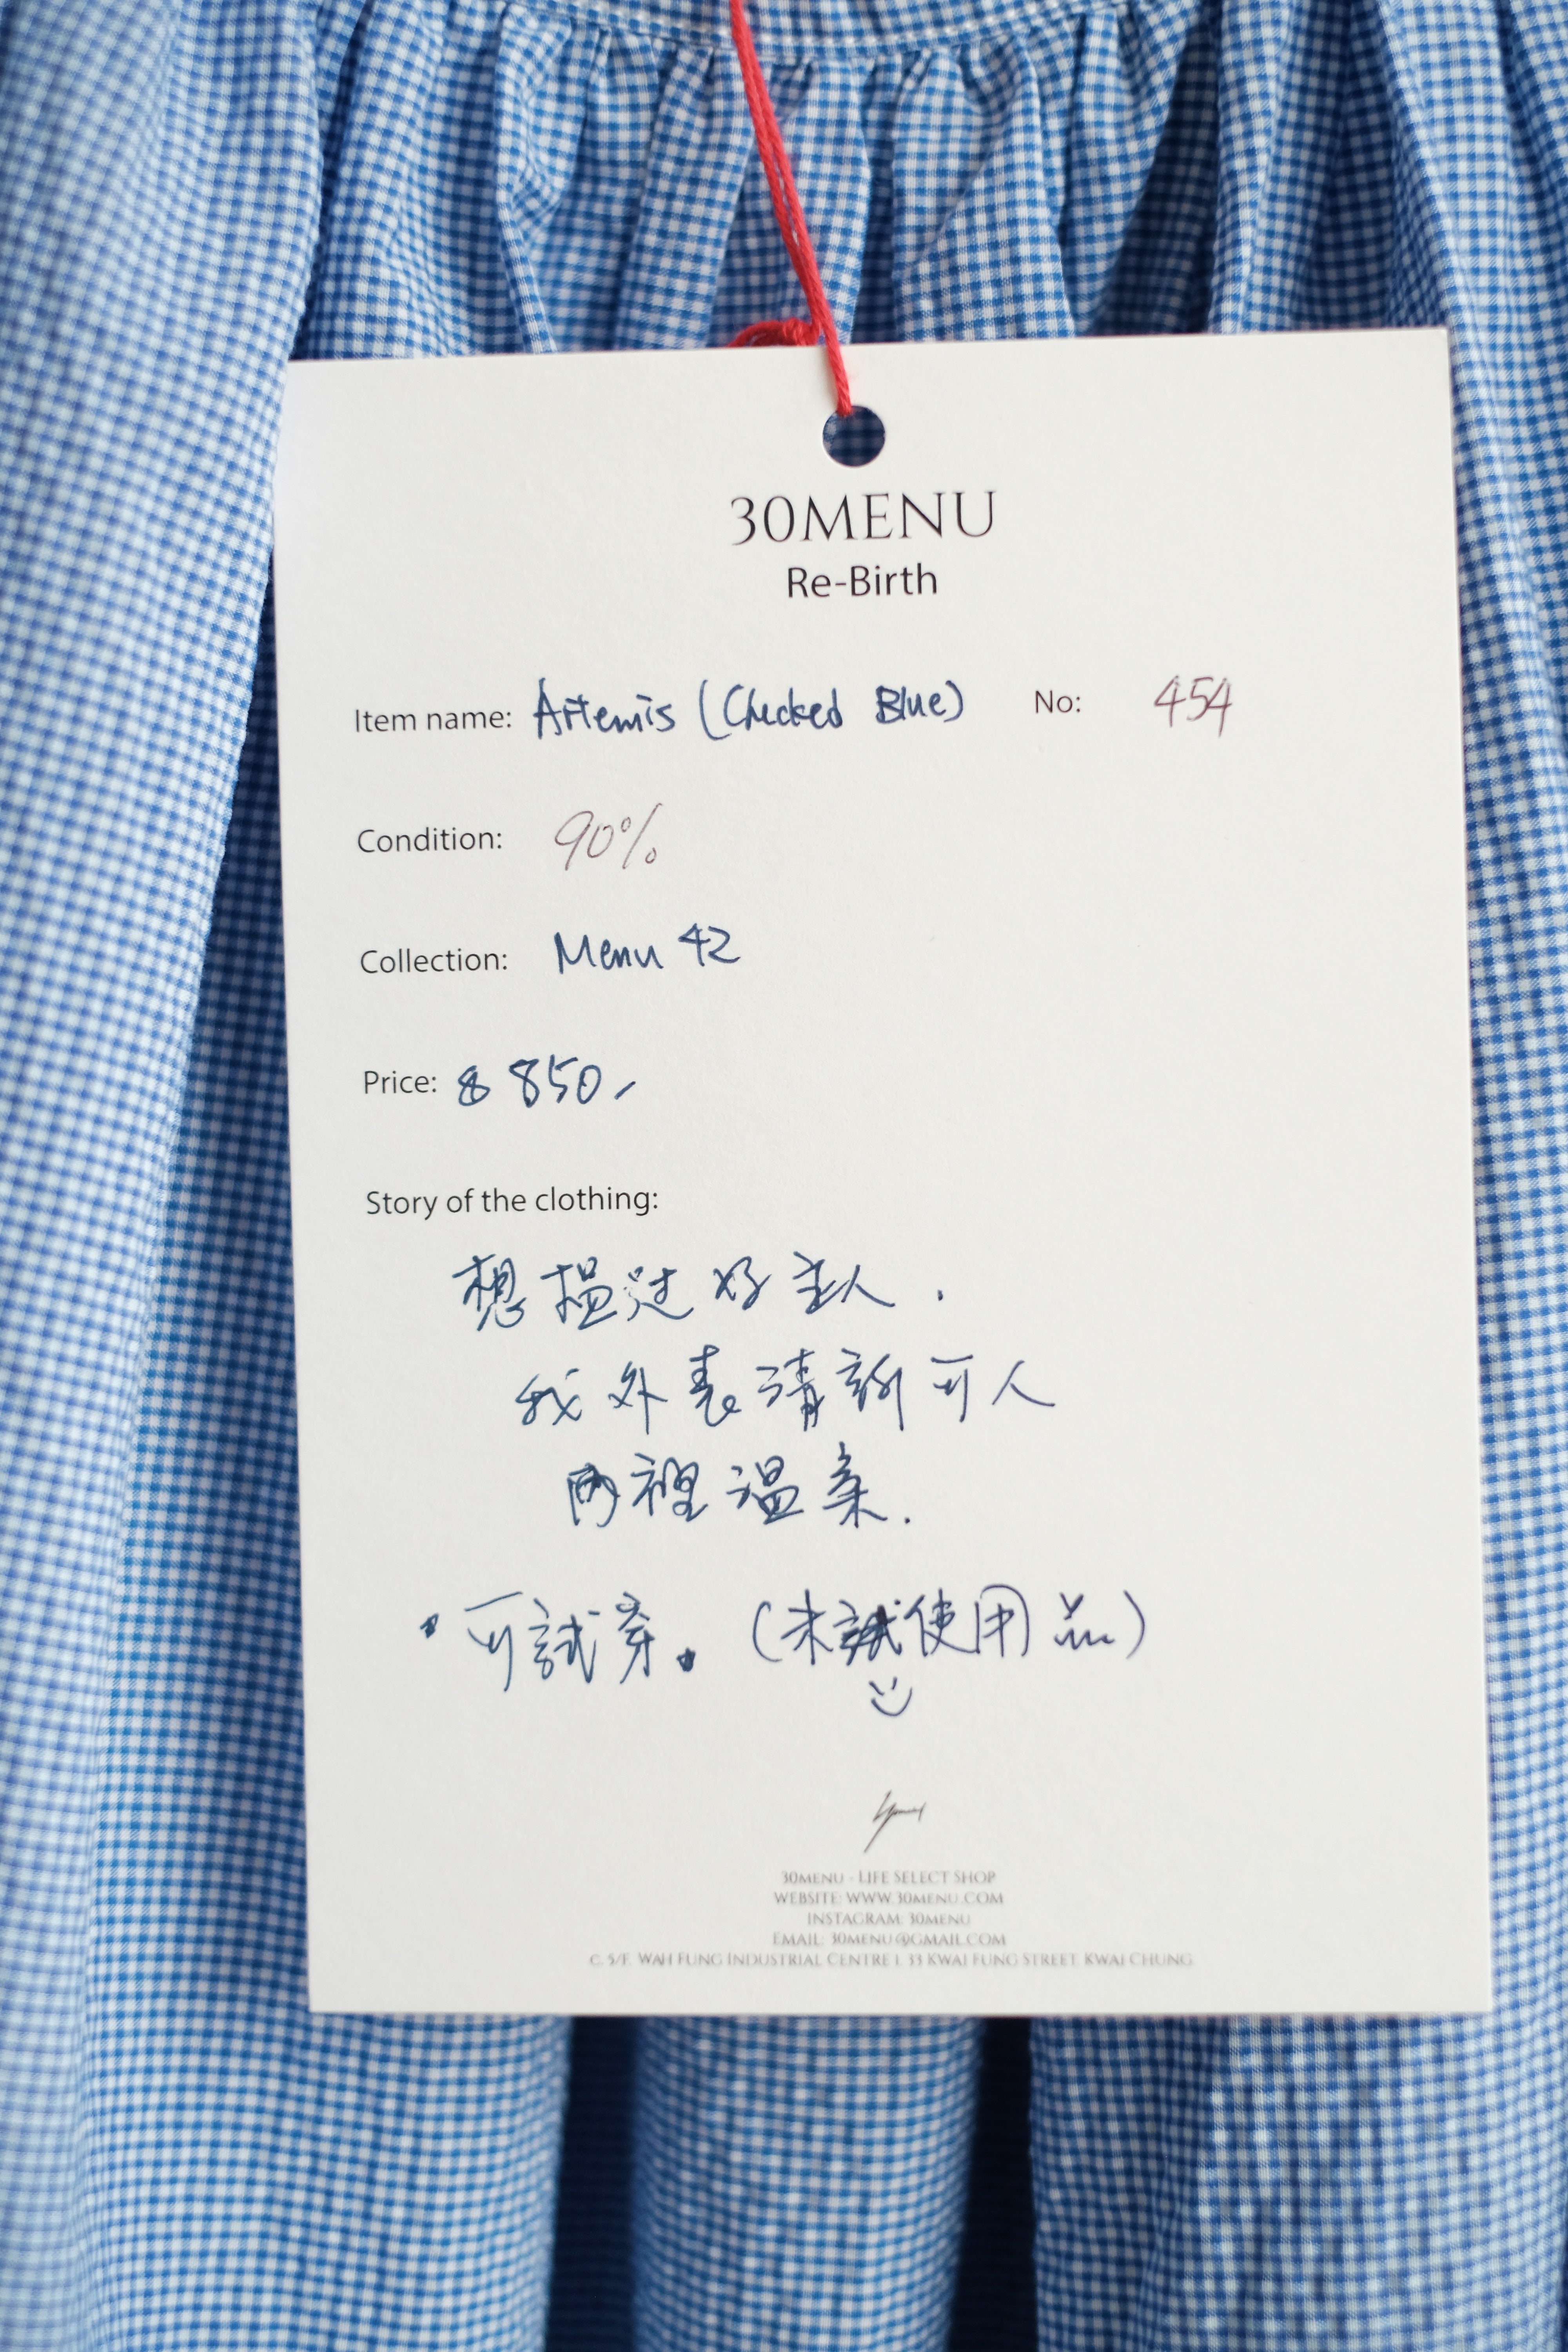 30MENU
Re-Birth
Item name: Artemis (Checked Blue) No: 454
Condition: 90%
Collection: Menu 42
Price: $ 850.-
Story of the clothing:
想搵过好主人.
我外表清新可人
内裡温柔.
• 可試穿。(未試使用品)
30MENU - LIFE SELECT SHOP
WEBSITE: WWW.30MENU.COM
INSTAGRAM: 30MENU
EMAIL: 30MENU@GMAIL.COM
C, 5/F, WAH FUNG INDUSTRIAL CENTRE 1, 33 KWAI FUNG STREET, KWAI CHUNG